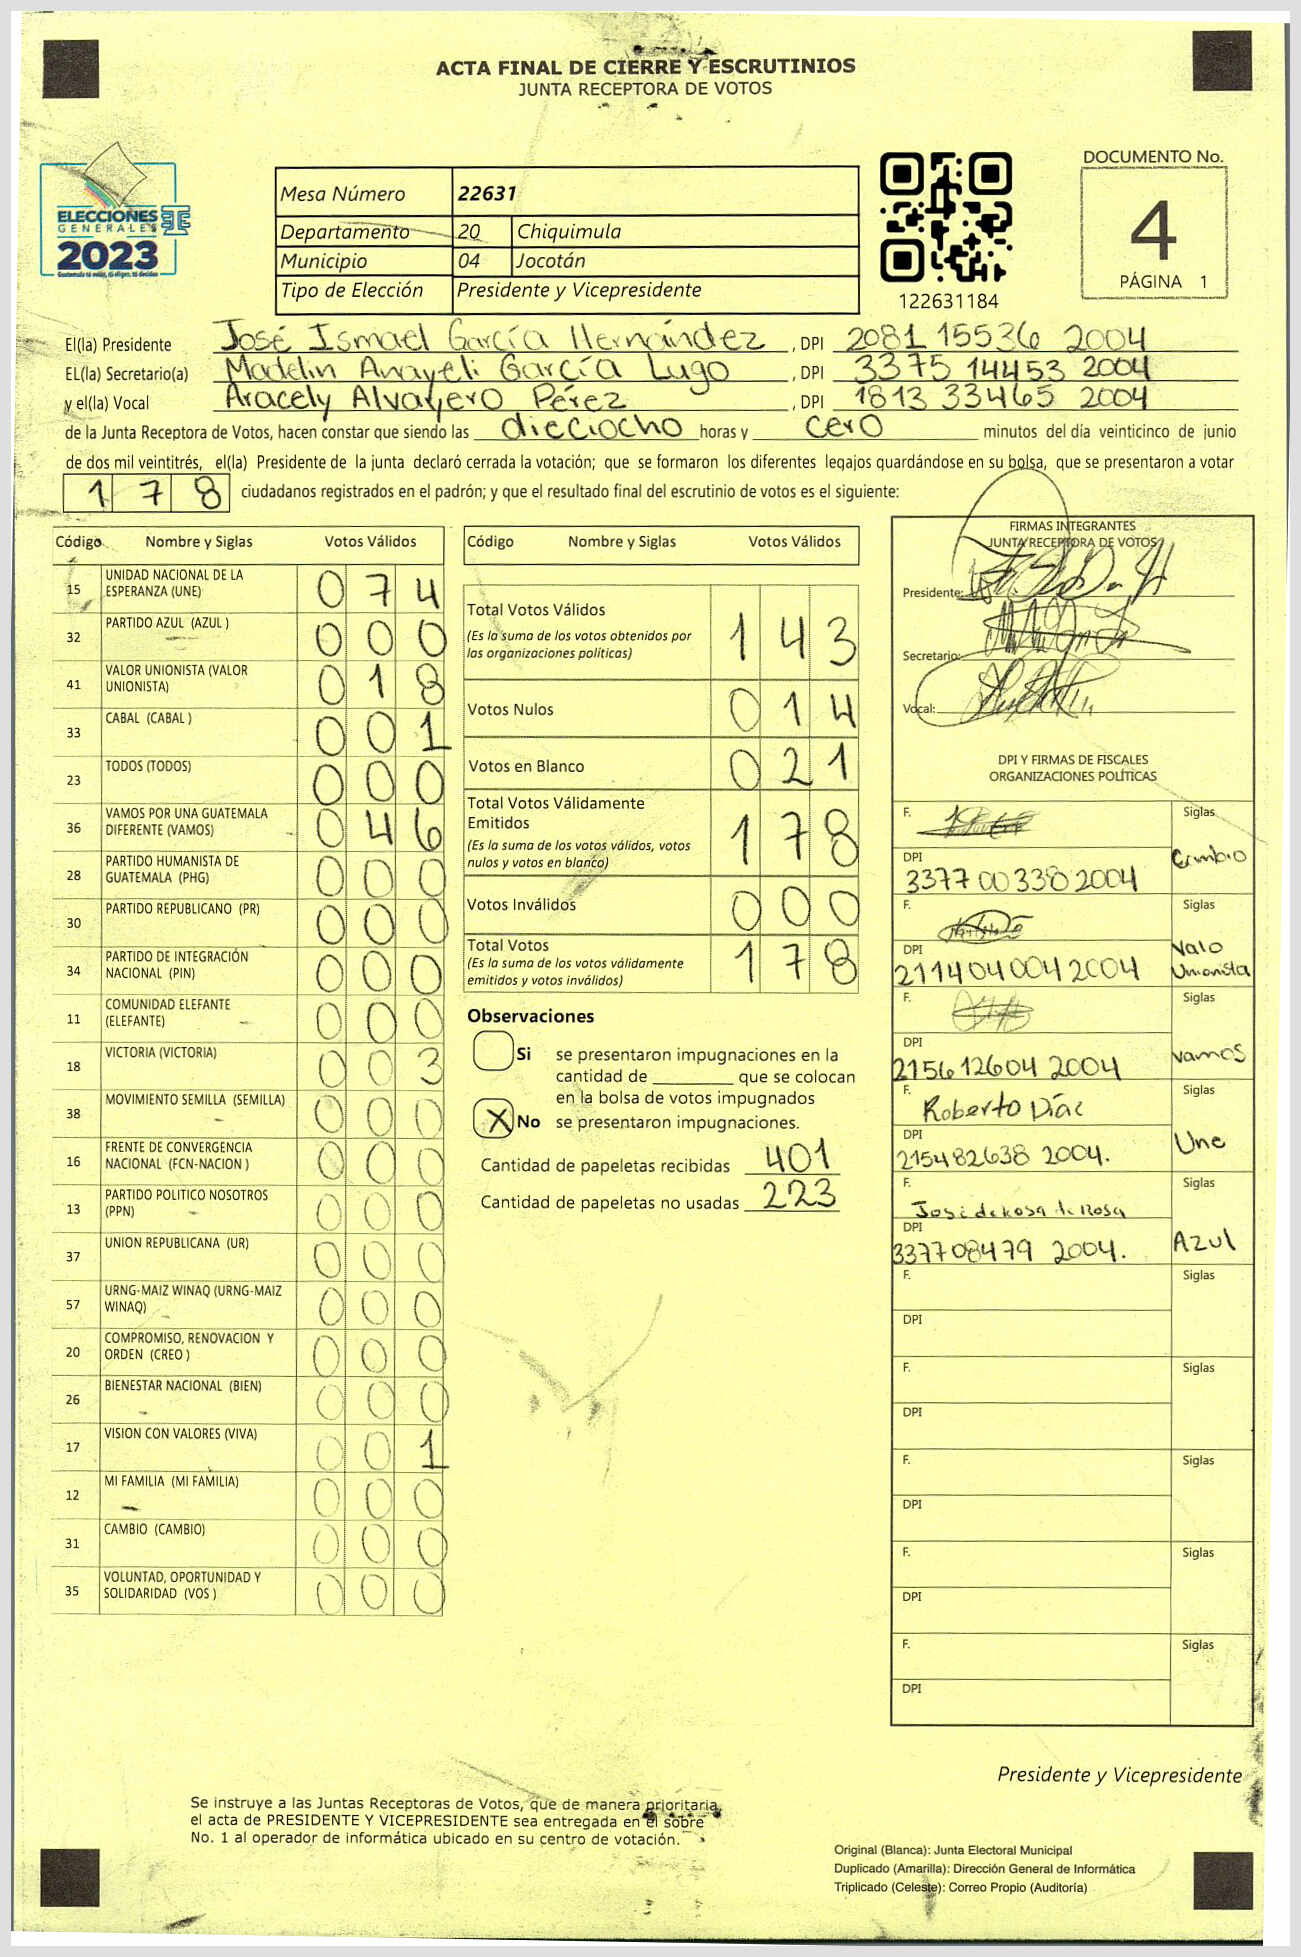 ACTA FINAL DE CIERRE Y ESCRUTINIOS
JUNTA RECEPTORA DE VOTOS
ELECCIONES
GENERALES
2023
Mesa Número 22631
Departamento 20 Chiquimula
Municipio 04 Jocotán
Tipo de Elección Presidente y Vicepresidente
122631184
DOCUMENTO No.
4
PÁGINA 1
El(la) Presidente José Ismael García Hernández , DPI 2081 15536 2004
EL(la) Secretario(a) Madelin Anayeli García Lugo , DPI 3375 14453 2004
y el(la) Vocal Aracely Alvayero Pérez , DPI 1813 33465 2004
de la Junta Receptora de Votos, hacen constar que siendo las dieciocho horas y cero minutos del día veinticinco de junio
de dos mil veintitrés, el(la) Presidente de la junta declaró cerrada la votación; que se formaron los diferentes legajos guardándose en su bolsa, que se presentaron a votar
178 ciudadanos registrados en el padrón; y que el resultado final del escrutinio de votos es el siguiente:
Código Nombre y Siglas Votos Válidos
15 UNIDAD NACIONAL DE LA ESPERANZA (UNE) 074
32 PARTIDO AZUL (AZUL ) 000
41 VALOR UNIONISTA (VALOR UNIONISTA) 018
33 CABAL (CABAL ) 001
23 TODOS (TODOS) 000
36 VAMOS POR UNA GUATEMALA DIFERENTE (VAMOS) 046
28 PARTIDO HUMANISTA DE GUATEMALA (PHG) 000
30 PARTIDO REPUBLICANO (PR) 000
34 PARTIDO DE INTEGRACIÓN NACIONAL (PIN) 000
11 COMUNIDAD ELEFANTE (ELEFANTE) 000
18 VICTORIA (VICTORIA) 003
38 MOVIMIENTO SEMILLA (SEMILLA) 000
16 FRENTE DE CONVERGENCIA NACIONAL (FCN-NACION ) 000
13 PARTIDO POLITICO NOSOTROS (PPN) 000
37 UNION REPUBLICANA (UR) 000
57 URNG-MAIZ WINAQ (URNG-MAIZ WINAQ) 000
20 COMPROMISO, RENOVACION Y ORDEN (CREO ) 000
26 BIENESTAR NACIONAL (BIEN) 000
17 VISION CON VALORES (VIVA) 001
12 MI FAMILIA (MI FAMILIA) 000
31 CAMBIO (CAMBIO) 000
35 VOLUNTAD, OPORTUNIDAD Y SOLIDARIDAD (VOS ) 000
Código Nombre y Siglas Votos Válidos
Total Votos Válidos 143
(Es la suma de los votos obtenidos por
las organizaciones políticas)
Votos Nulos 014
Votos en Blanco 021
Total Votos Válidamente
Emitidos 178
(Es la suma de los votos válidos, votos
nulos y votos en blanco)
Votos Inválidos 000
Total Votos 178
(Es la suma de los votos válidamente
emitidos y votos inválidos)
Observaciones
Si se presentaron impugnaciones en la
cantidad de ________ que se colocan
en la bolsa de votos impugnados
X No se presentaron impugnaciones.
Cantidad de papeletas recibidas 401
Cantidad de papeletas no usadas 223
FIRMAS INTEGRANTES
JUNTA RECEPTORA DE VOTOS
Presidente:
Secretario:
Vocal:
DPI Y FIRMAS DE FISCALES
ORGANIZACIONES POLÍTICAS
F. Siglas
DPI 3377 00338 2004
F. Siglas Valo Unionista
DPI 2114 04004 2004
F. Siglas vamos
DPI 2156 12604 2004
F. Roberto Díaz Siglas Une
DPI 2154 82638 2004.
F. José de Rosa de Rosa Siglas Azul
DPI 3377 08479 2004.
F. Siglas
DPI
F. Siglas
DPI
F. Siglas
DPI
F. Siglas
DPI
F. Siglas
DPI
Presidente y Vicepresidente
Se instruye a las Juntas Receptoras de Votos, que de manera prioritaria,
el acta de PRESIDENTE Y VICEPRESIDENTE sea entregada en el sobre
No. 1 al operador de informática ubicado en su centro de votación.
Original (Blanca): Junta Electoral Municipal
Duplicado (Amarilla): Dirección General de Informática
Triplicado (Celeste): Correo Propio (Auditoría)